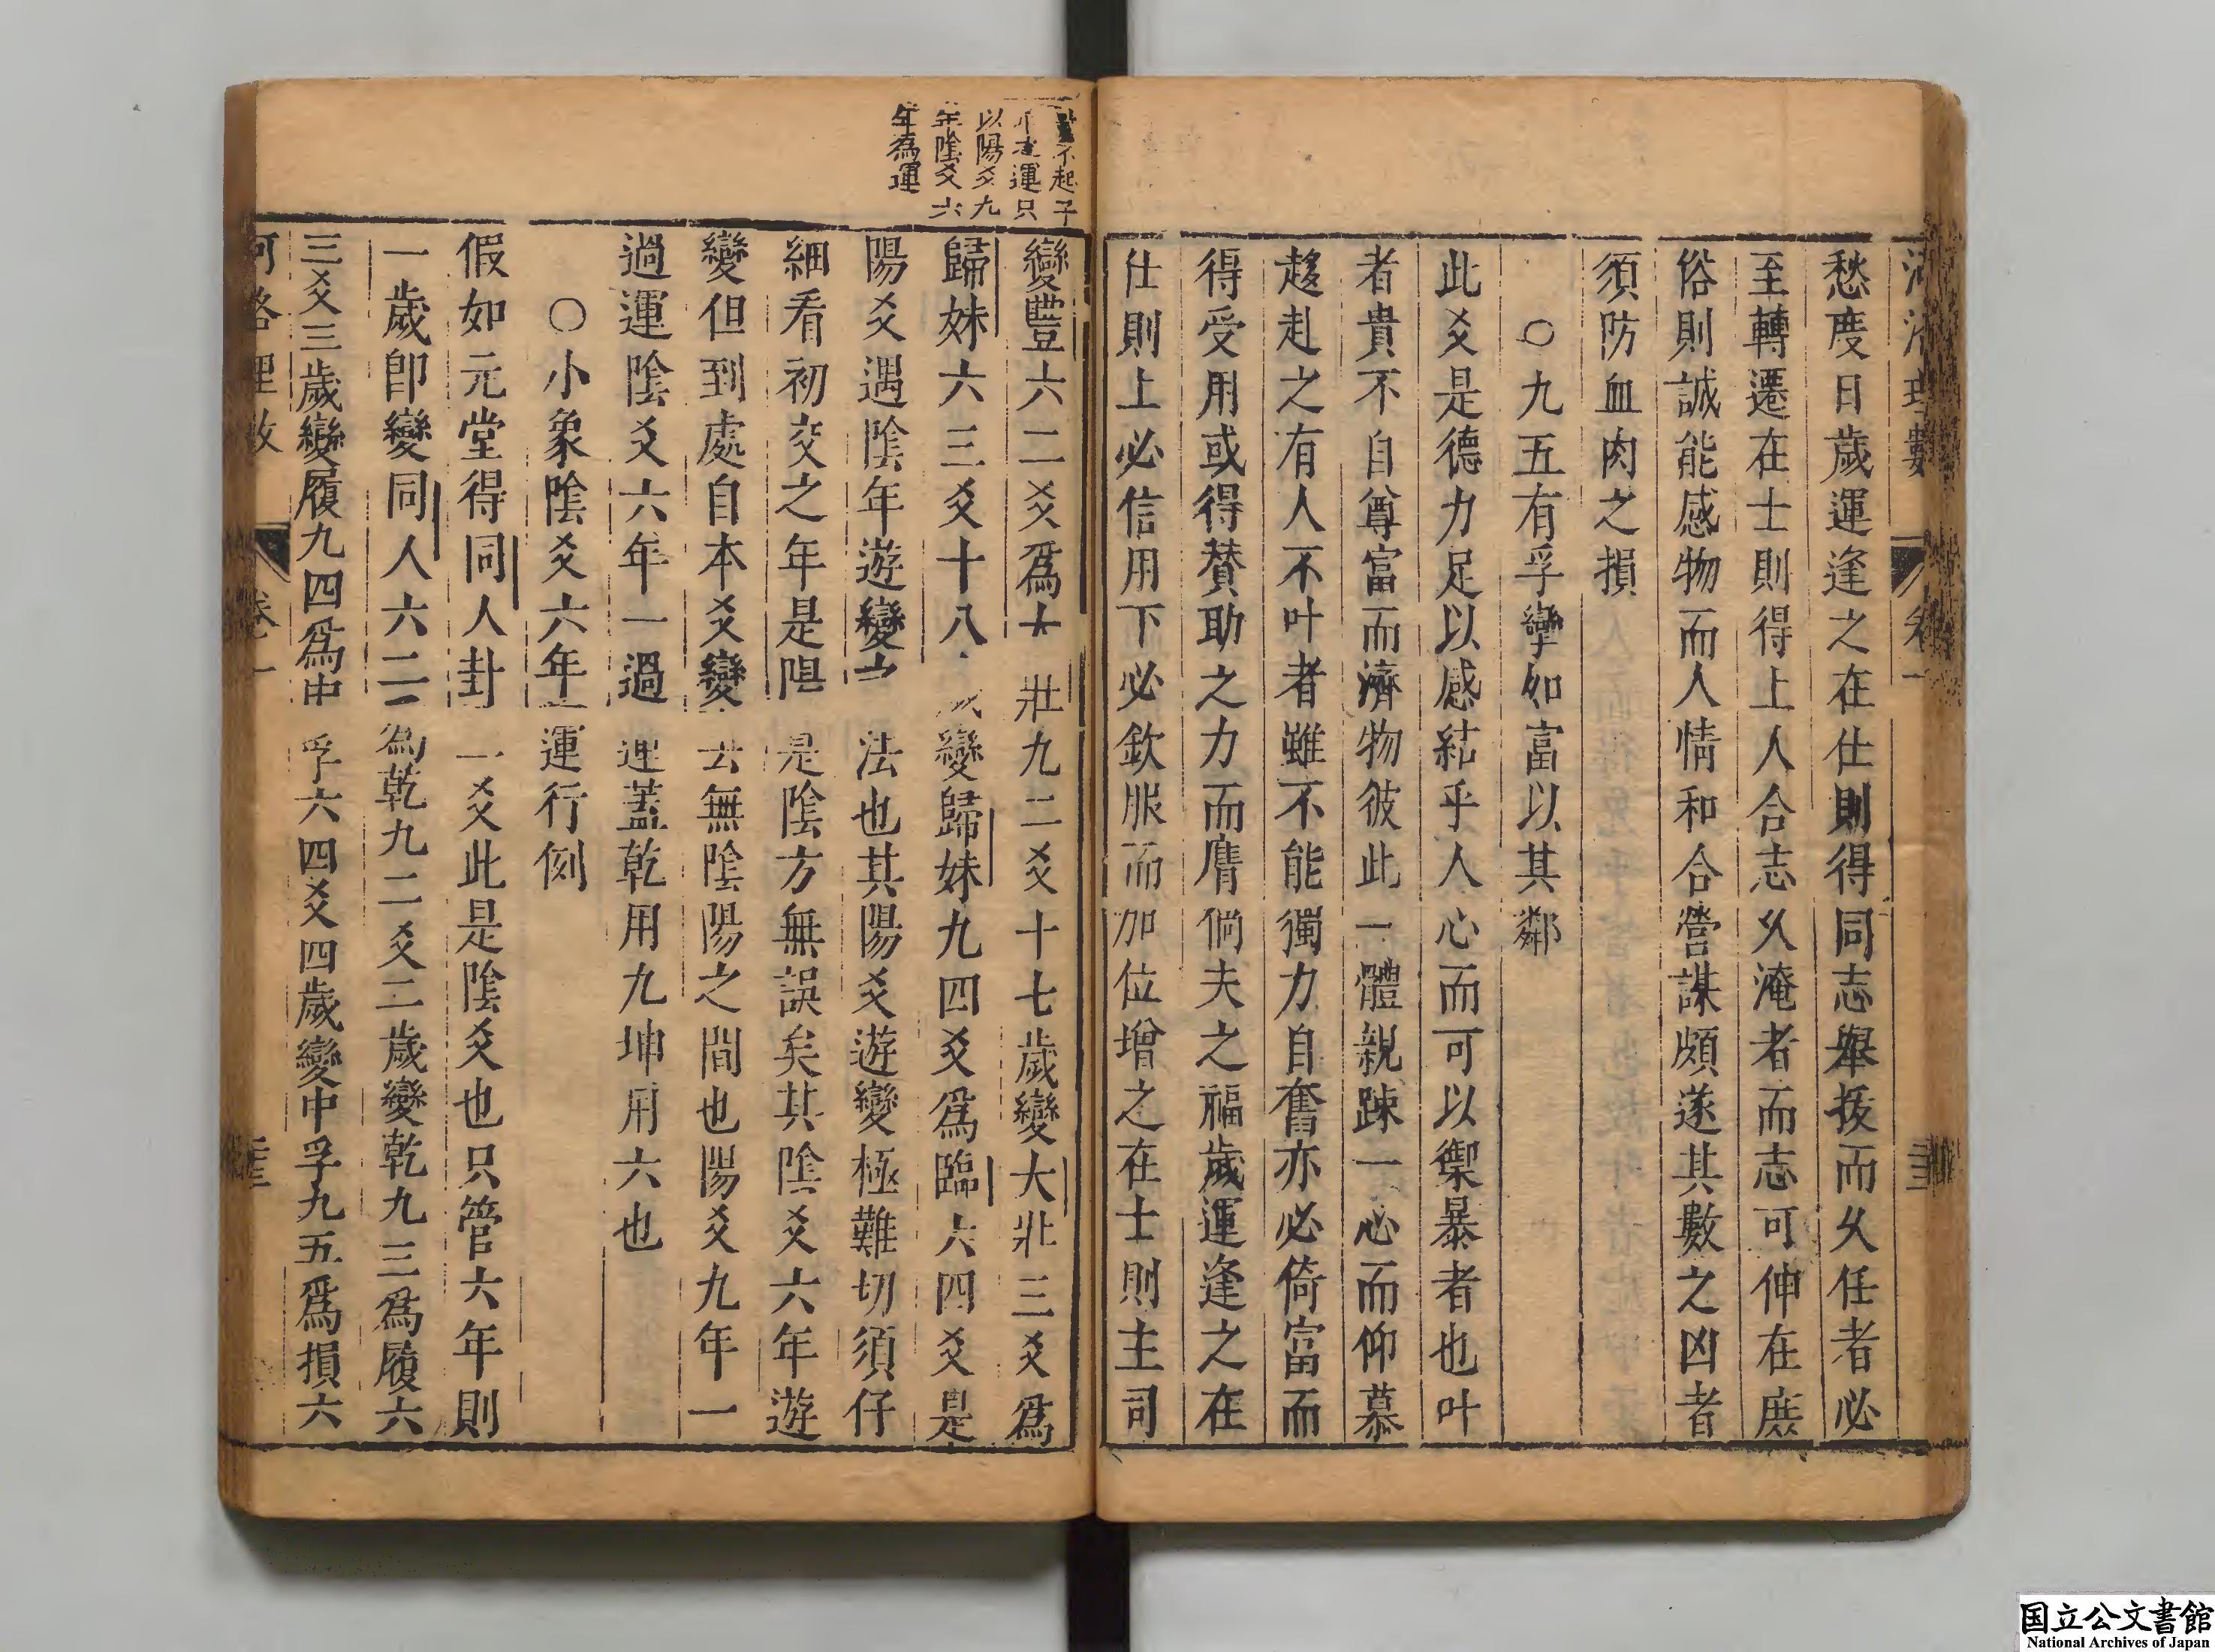 河洛理數 卷一
愁度日歲運逢之在仕則得同志舉援而久任者必
至轉遷在士則得上人合志久淹者而志可伸在庶
俗則誠能感物而人情和合營謀頗遂其數之凶者
須防血肉之損
○九五有孚攣如富以其鄰
此爻是德力足以感結乎人心而可以禦暴者也叶
者貴不自尊富而濟物彼此一體親踈一心而仰慕
趍赴之有人不叶者雖不能獨力自奮亦必倚富而
得受用或得賛助之力而膺倘夫之福歲運逢之在
仕則上必信用下必欽服而加位增之在士則主司
不起子
運只
以陽爻九
年陰爻六
年為運
變豐六二爻爲大壯九二爻十七歲變大壯三爻爲
歸妹六三爻十八歲變歸妹九四爻爲臨六四爻是
陽爻遇陰年遊變之法也其陽爻遊變極難切須仔
細看初交之年是陽是陰方無誤矣其陰爻六年遊
變但到處自本爻變去無陰陽之間也陽爻九年一
過運陰爻六年一過運蓋乾用九坤用六也
○小象陰爻六年運行例
假如元堂得同人卦一爻此是陰爻也只管六年則
一歲卽變同人六二爲乾九二爻二歲變乾九三爲履六
三爻三歲變履九四爲中孚六四爻四歲變中孚九五爲損六
河洛理數 卷一